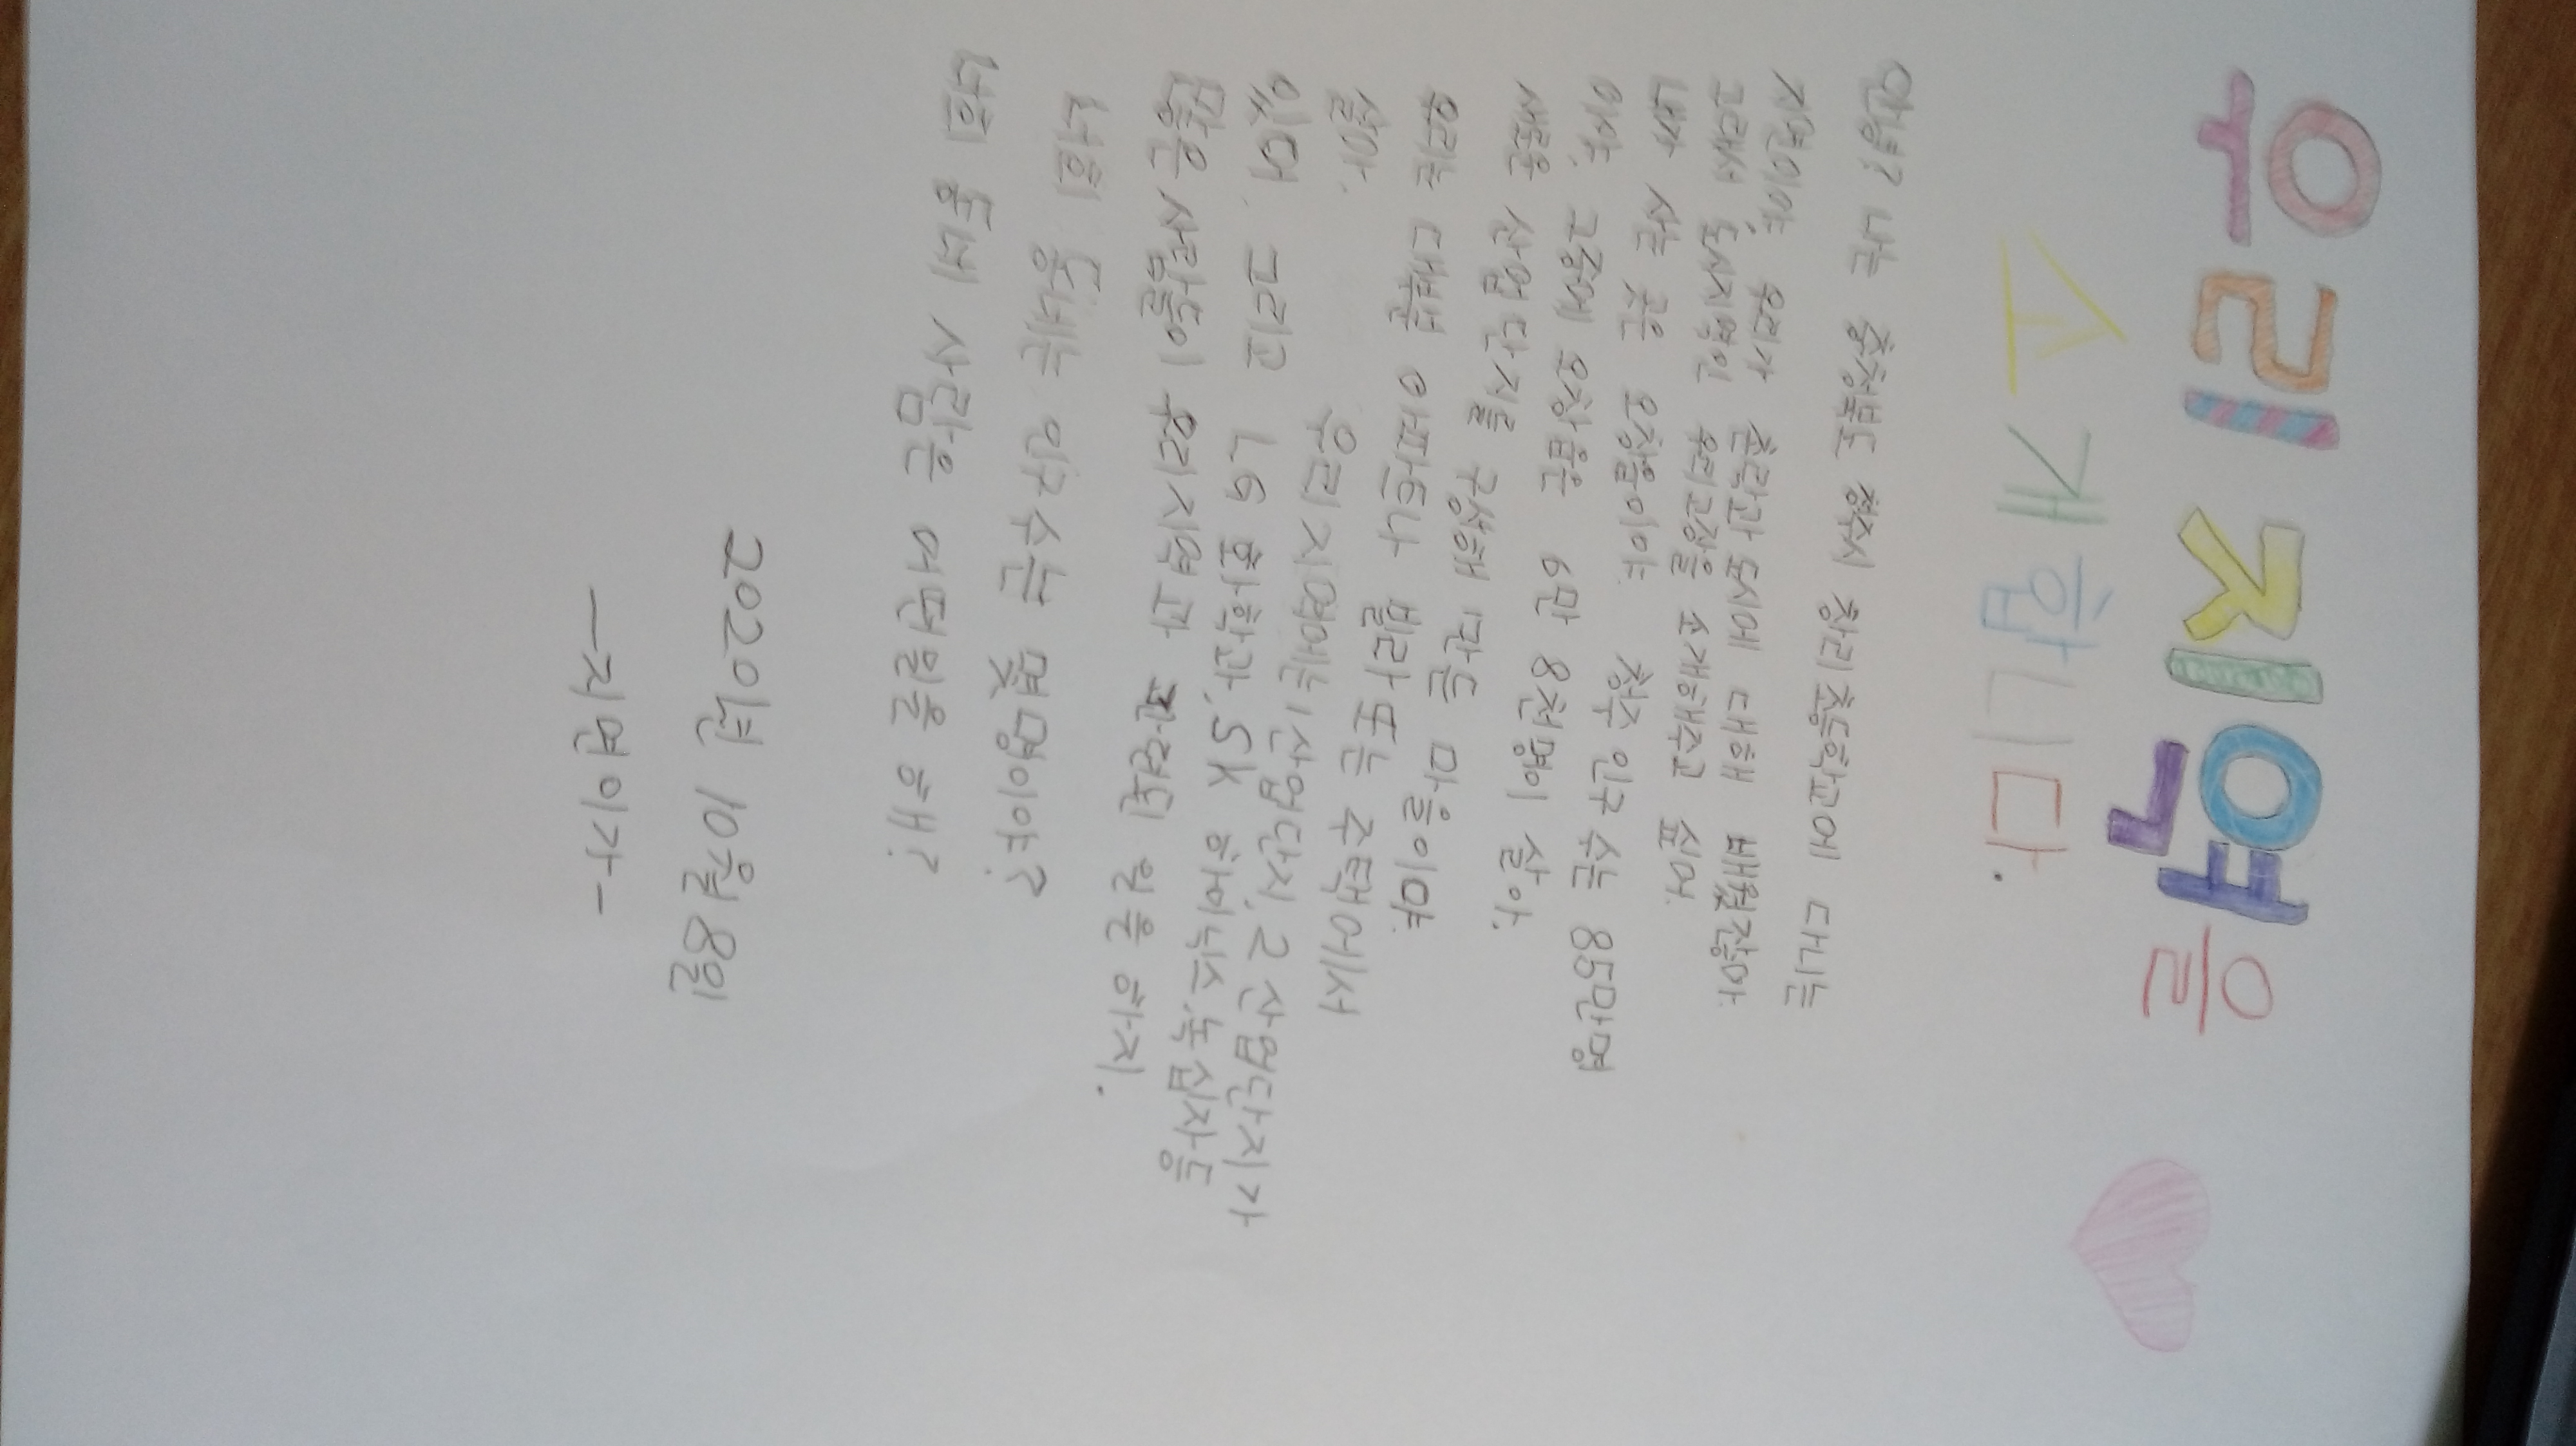 우리 지역을
소개합니다.
안녕? 나는 충청북도 청주시 창리초등학교에 다니는
지연이야. 우리가 촌락과 도시에 대해 배웠잖아.
그래서 도시지역인 우리고장을 소개해주고 싶어.
내가 사는 곳은 오창읍이야. 청주 인구 수는 85만명
이야. 그중에 오창읍은 6만 8천명이 살아.
새로운 산업단지를 구성해 만든 마을이야.
우리는 대부분 아파트나 빌라 또는 주택에서
살아. 우리지역에는 1산업단지, 2산업단지가
있어. 그리고 LG 화학과, SK 하이닉스, 녹십자등
많은사람들이 우리지역과 관련된 일을 하지.
너희 동네는 인구수는 몇명이야?
너희 동네 사람은 어떤일을 해?
2020년 10월8일
-지연이가-